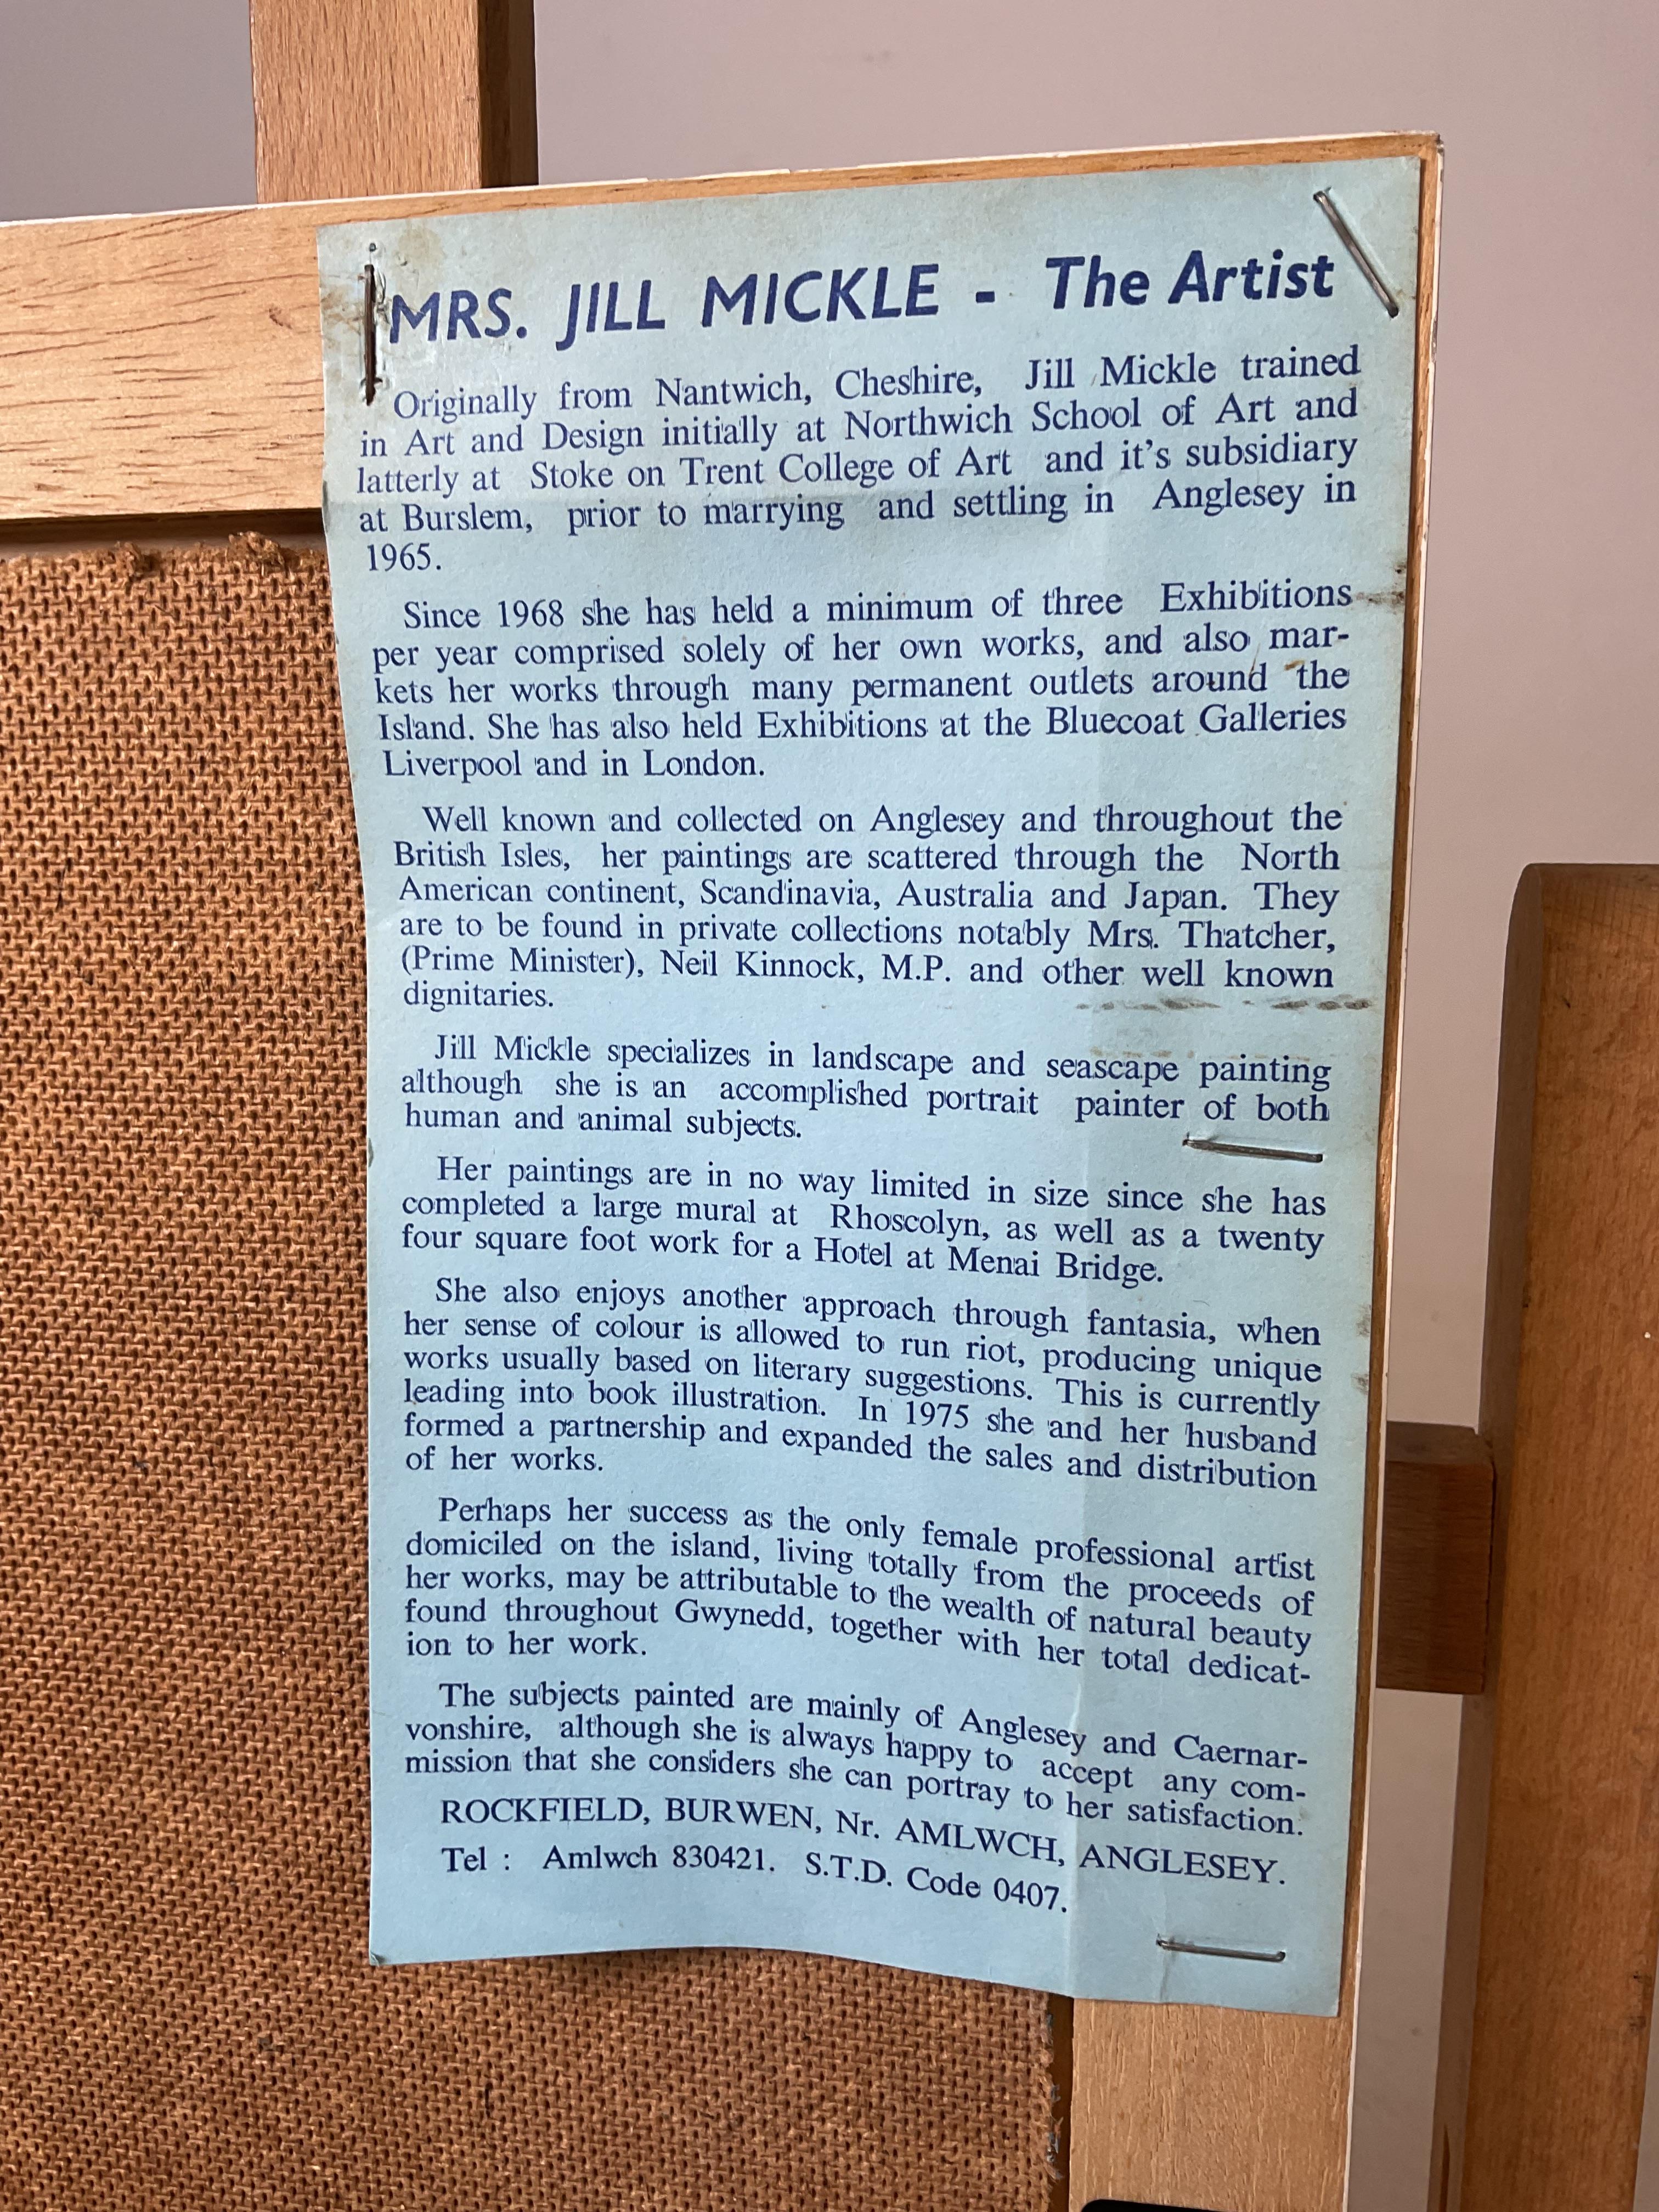 MRS. JILL MICKLE - The Artist
Originally from Nantwich, Cheshire, Jill Mickle trained
in Art and Design initially at Northwich School of Art and
latterly at Stoke on Trent College of Art and it's subsidiary
at Burslem, prior to marrying and settling in Anglesey in
1965.
Since 1968 she has held a minimum of three Exhibitions
per year comprised solely of her own works, and also mar-
kets her works through many permanent outlets around the
Island. She has also held Exhibitions at the Bluecoat Galleries
Liverpool and in London.
Well known and collected on Anglesey and throughout the
British Isles, her paintings are scattered through the North
American continent, Scandinavia, Australia and Japan. They
are to be found in private collections notably Mrs. Thatcher,
(Prime Minister), Neil Kinnock, M.P. and other well known
dignitaries.
Jill Mickle specializes in landscape and seascape painting
although she is an accomplished portrait painter of both
human and animal subjects.
Her paintings are in no way limited in size since she has
completed a large mural at Rhoscolyn, as well as a twenty
four square foot work for a Hotel at Menai Bridge.
She also enjoys another approach through fantasia, when
her sense of colour is allowed to run riot, producing unique
works usually based on literary suggestions. This is currently
leading into book illustration. In 1975 she and her husband
formed a partnership and expanded the sales and distribution
of her works.
Perhaps her success as the only female professional artist
domiciled on the island, living totally from the proceeds of
her works, may be attributable to the wealth of natural beauty
found throughout Gwynedd, together with her total dedicat-
ion to her work.
The subjects painted are mainly of Anglesey and Caernar-
vonshire, although she is always happy to accept any com-
mission that she considers she can portray to her satisfaction.
ROCKFIELD, BURWEN, Nr. AMLWCH, ANGLESEY.
Tel : Amlwch 830421. S.T.D. Code 0407.